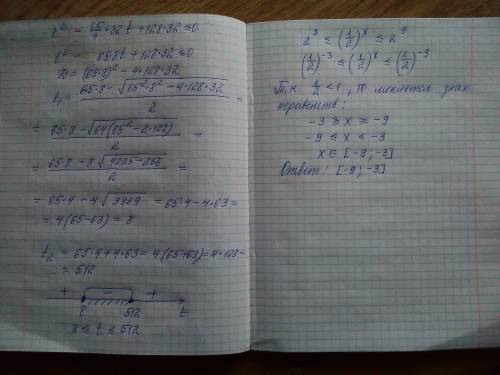 t² - 65/4 · 32t + 128·32 ≤ 0
t² - 65·8t + 128·32 ≤ 0
D = (65·8)² - 4·128·32
t₁ = (65·8 - √(65²·8² - 4·128·32))/2 =
= (65·8 - √(64(65² - 2·128)))/2 =
= (65·8 - 8√(4225-256))/2 =
= 65·4 - 4√3969 = 65·4 - 4·63 =
= 4(65-63) = 8
t₂ = 65·4 + 4·63 = 4(65+63) = 4·128 =
= 512
+ - +
8 512 t
8 ≤ t ≤ 512
2³ ≤ (1/2)ˣ ≤ 2⁹
(1/2)⁻³ ≤ (1/2)ˣ ≤ (1/2)⁻⁹
Т.к. 1/2 < 1, то меняется знак
неравенств:
-3 ≥ x ≥ -9
-9 ≤ x ≤ -3
x ∈ [-9; -3]
Ответ: [-9; -3]